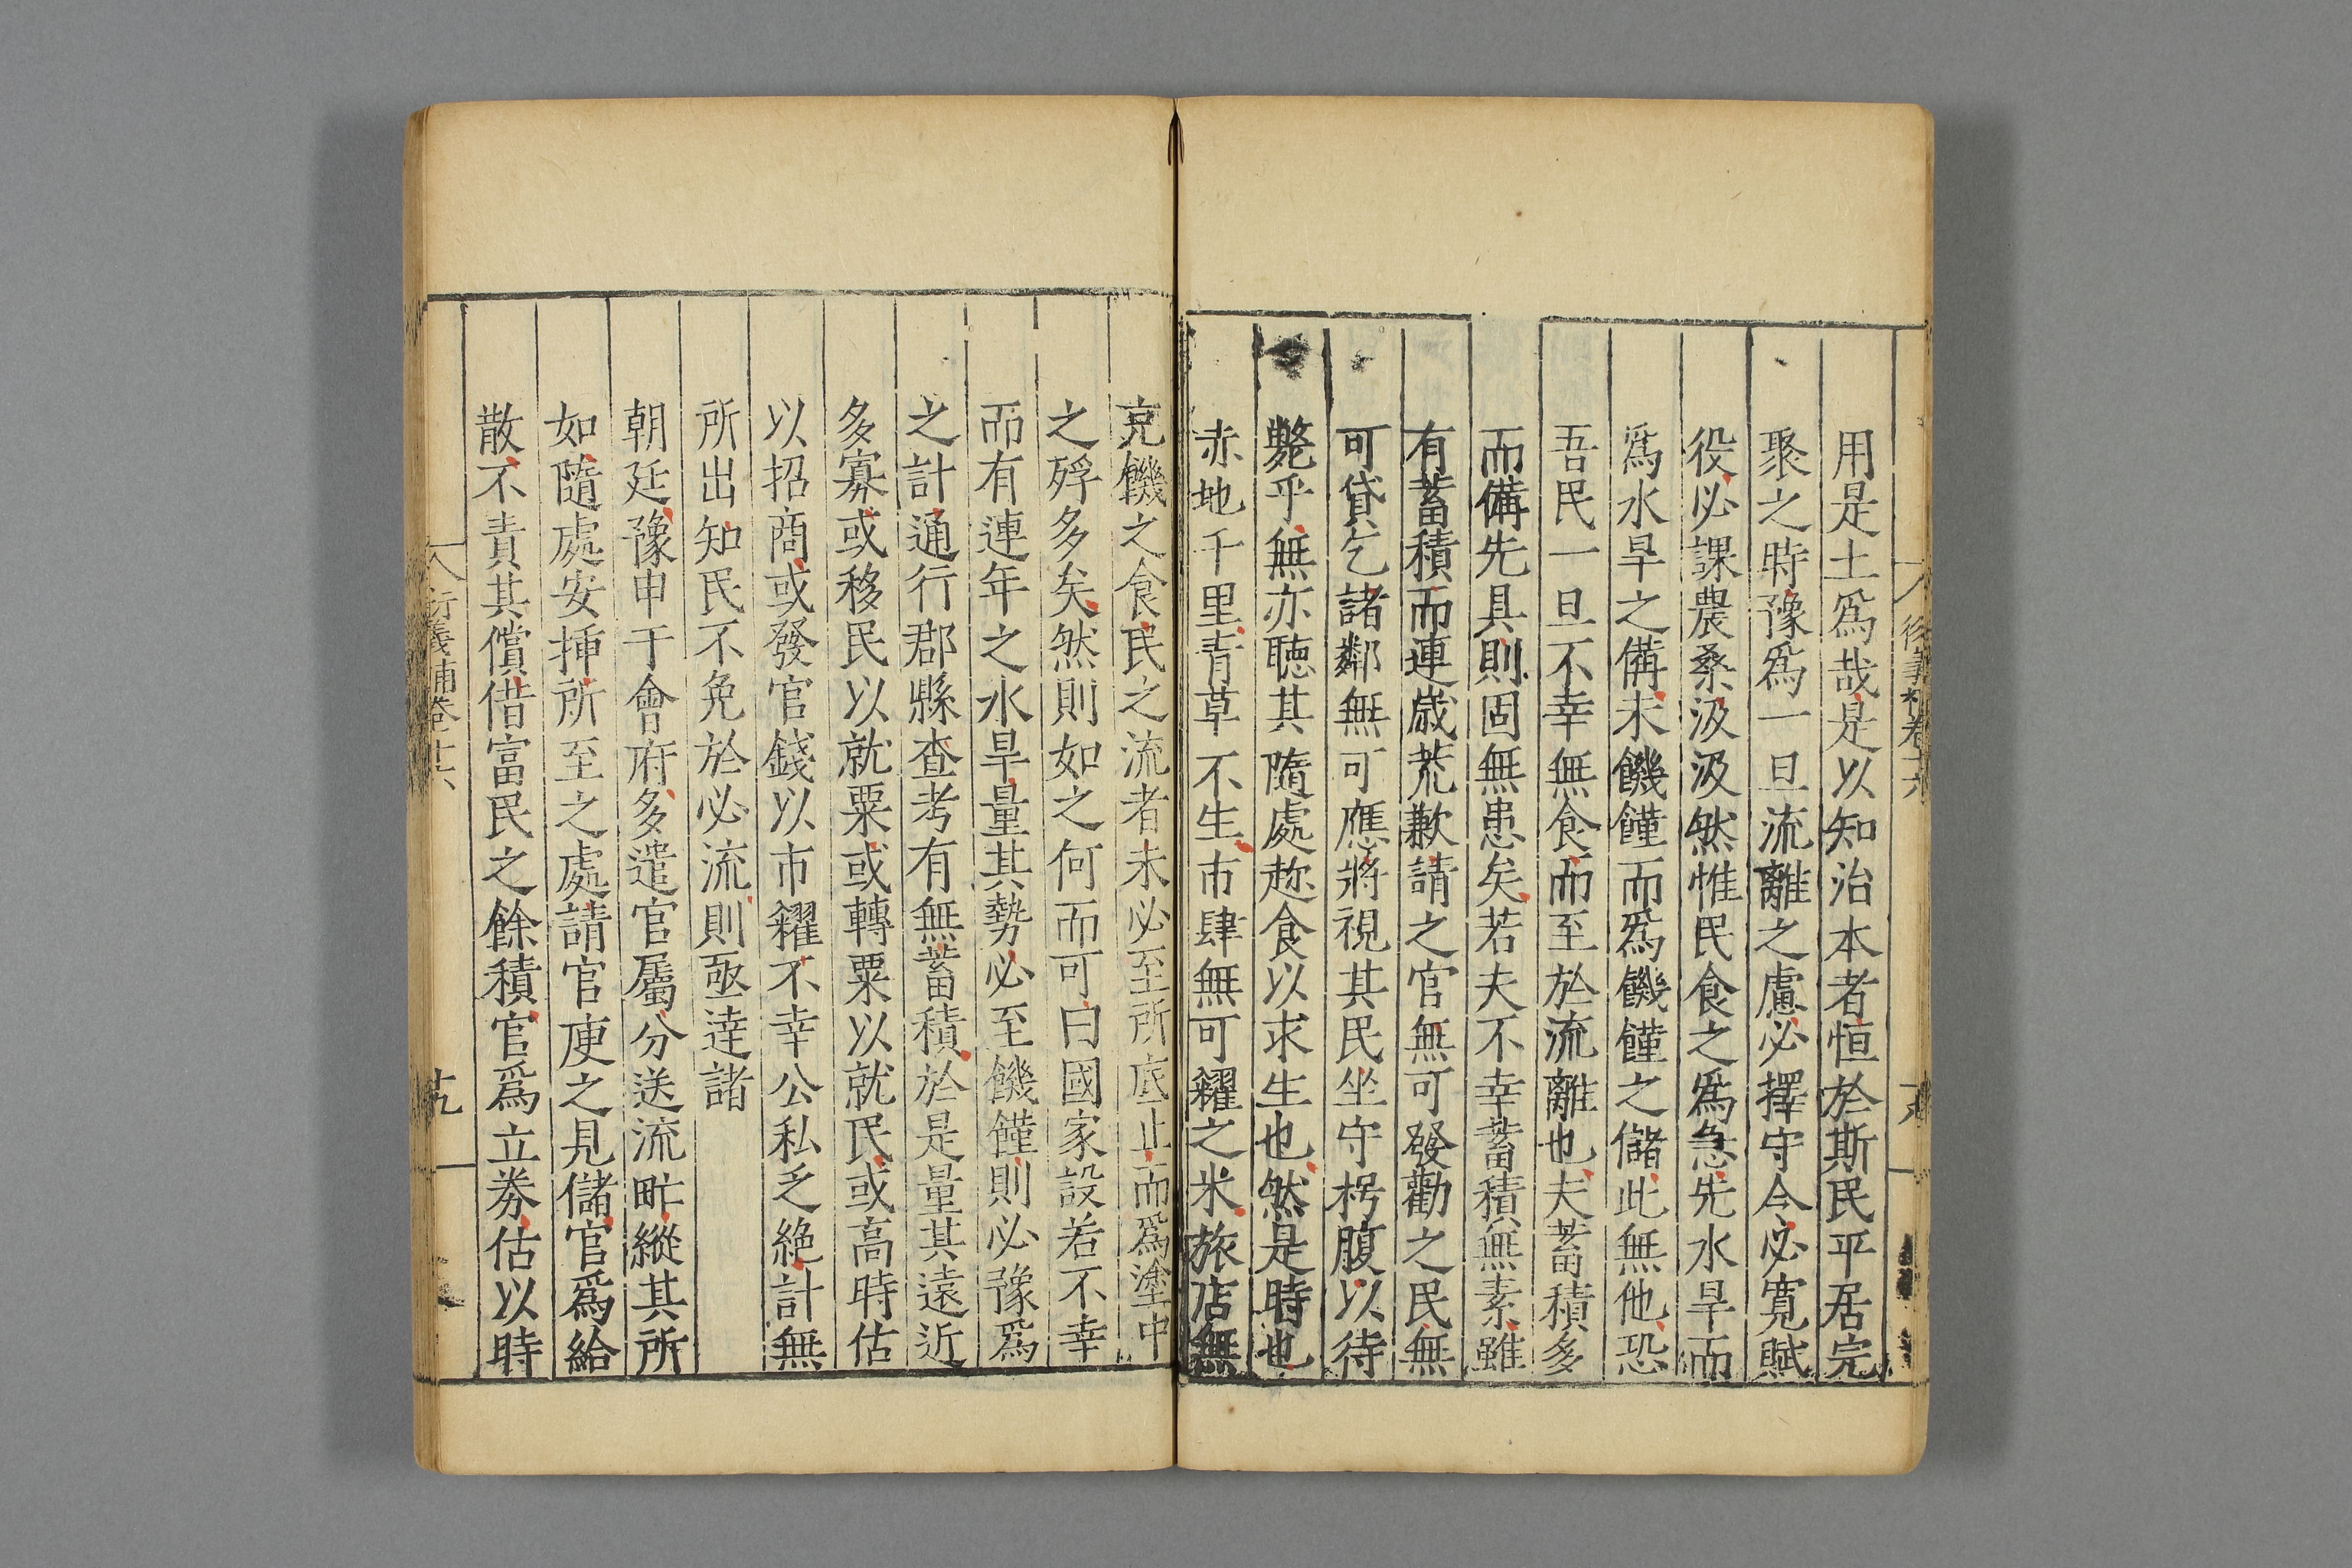 用是土爲哉是以知治本者恒於斯民平居完
聚之時豫爲一旦流離之慮必擇守令必寬賦
役必課農桑汲汲然惟民食之爲急先水旱而
爲水旱之備未饑饉而爲饑饉之儲此無他恐
吾民一旦不幸無食而至於流離也夫蓄積多
而備先具則固無患矣若夫不幸蓄積無素雖
有蓄積而連歲荒歉請之官無可發勸之民無
可貸乞諸鄰無可應將視其民坐守枵腹以待
斃乎無亦聽其隨處趂食以求生也然是時也
赤地千里青草不生市肆無可糴之米旅店無
充饑之食民之流者未必至所底止而爲塗中
之殍多矣然則如之何而可曰國家設若不幸
而有連年之水旱量其勢必至饑饉則必豫爲
之計通行郡縣查考有無蓄積於是量其遠近
多寡或移民以就粟或轉粟以就民或高時估
以招商或發官錢以市糴不幸公私乏絶計無
所出知民不免於必流則亟達諸
朝廷豫申于會府多遣官屬分送流甿縱其所
如隨處安揷所至之處請官庾之見儲官爲給
散不責其償借富民之餘積官爲立券估以時
衍義補卷十六
十九